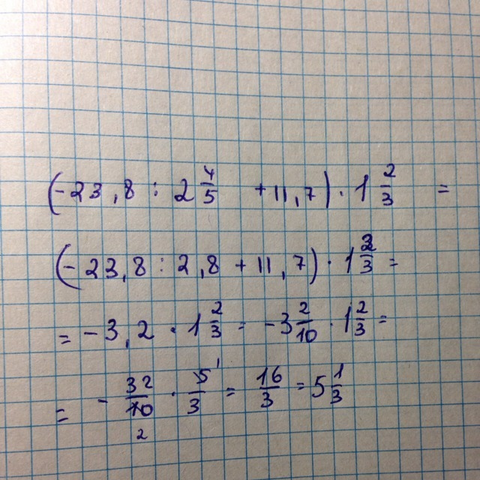 (-23,8 : 2 4/5 + 11,7) · 1 2/3 =
(-23,8 : 2,8 + 11,7) · 1 2/3 =
= -3,2 · 1 2/3 = -3 2/10 · 1 2/3 =
= - 32/10 2 · 5 1/3 = 16/3 = 5 1/3